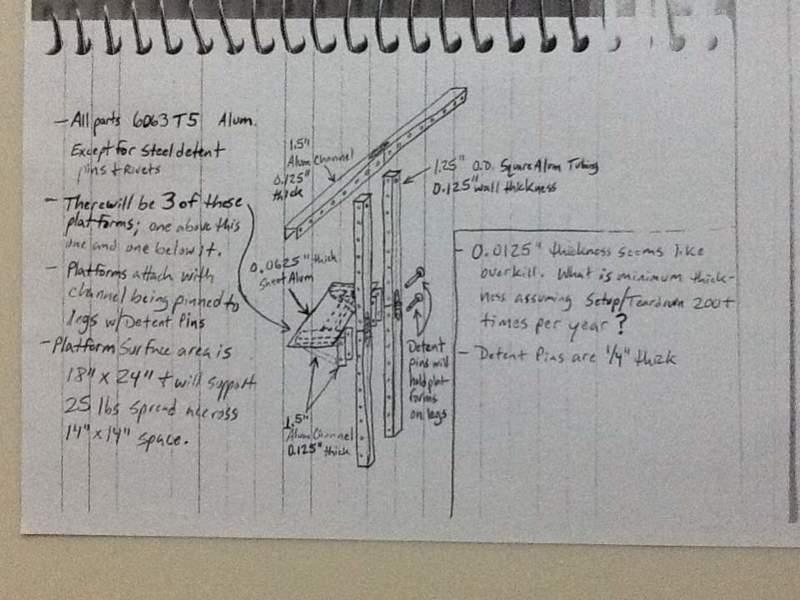 - All parts 6063 T5 Alum.
Except for Steel detent
pins + Rivets
- There will be 3 of these
platforms; one above this
one and one below it.
- Platforms attach with
channel being pinned to
legs w/ Detent Pins
- Platform Surface area is
18" x 24" + will support
25 lbs spread accross
14" x 14" space.
1.5"
Alum Channel
0.125"
thick
1.25" O.D. Square Alum Tubing
0.125" wall thickness
0.0625" thick
Sheet Alum
1.5"
Alum Channel
0.125" thick
Detent
pins will
hold plat-
forms
on legs
- 0.0125" thickness seems like
overkill. What is minimum thick-
ness assuming Setup/Teardown 200+
times per year?
- Detent Pins are 1/4" thick